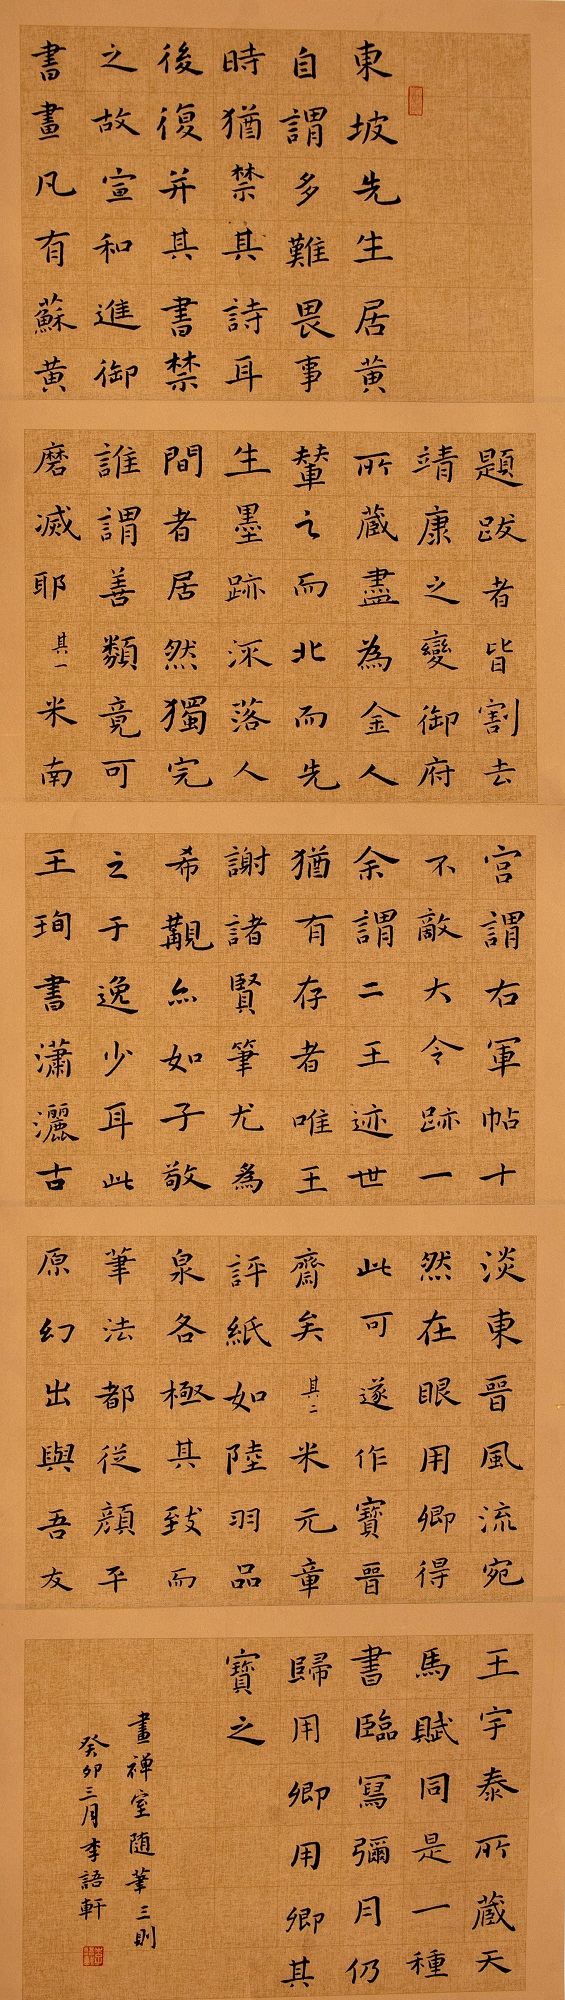 東坡先生居黄
自謂多難畏事
時猶禁其詩耳
後復并其書禁
之故宣和進御
書畫凡有蘇黄
題跋者皆割去
靖康之變御府
所藏盡為金人
輦之而北而先
生墨跡流落人
間者居然獨完
誰謂善類竟可
磨滅耶 其一 米南
宫謂右軍帖十
不敵大令跡一
余謂二王迹世
猶有存者唯王
謝諸賢筆尤為
希覯亦如子敬
之于逸少耳此
王珣書瀟灑古
淡東晉風流宛
然在眼用卿得
此可遂作寶晉
齋矣 其二 米元章
評紙如陸羽品
泉各極其致而
筆法都從顔平
原幻出與吾友
王宇泰所藏天
馬賦同是一種
書臨冩彌月仍
歸用卿用卿其
寶之
畫禅室随筆三則
癸卯三月李語軒